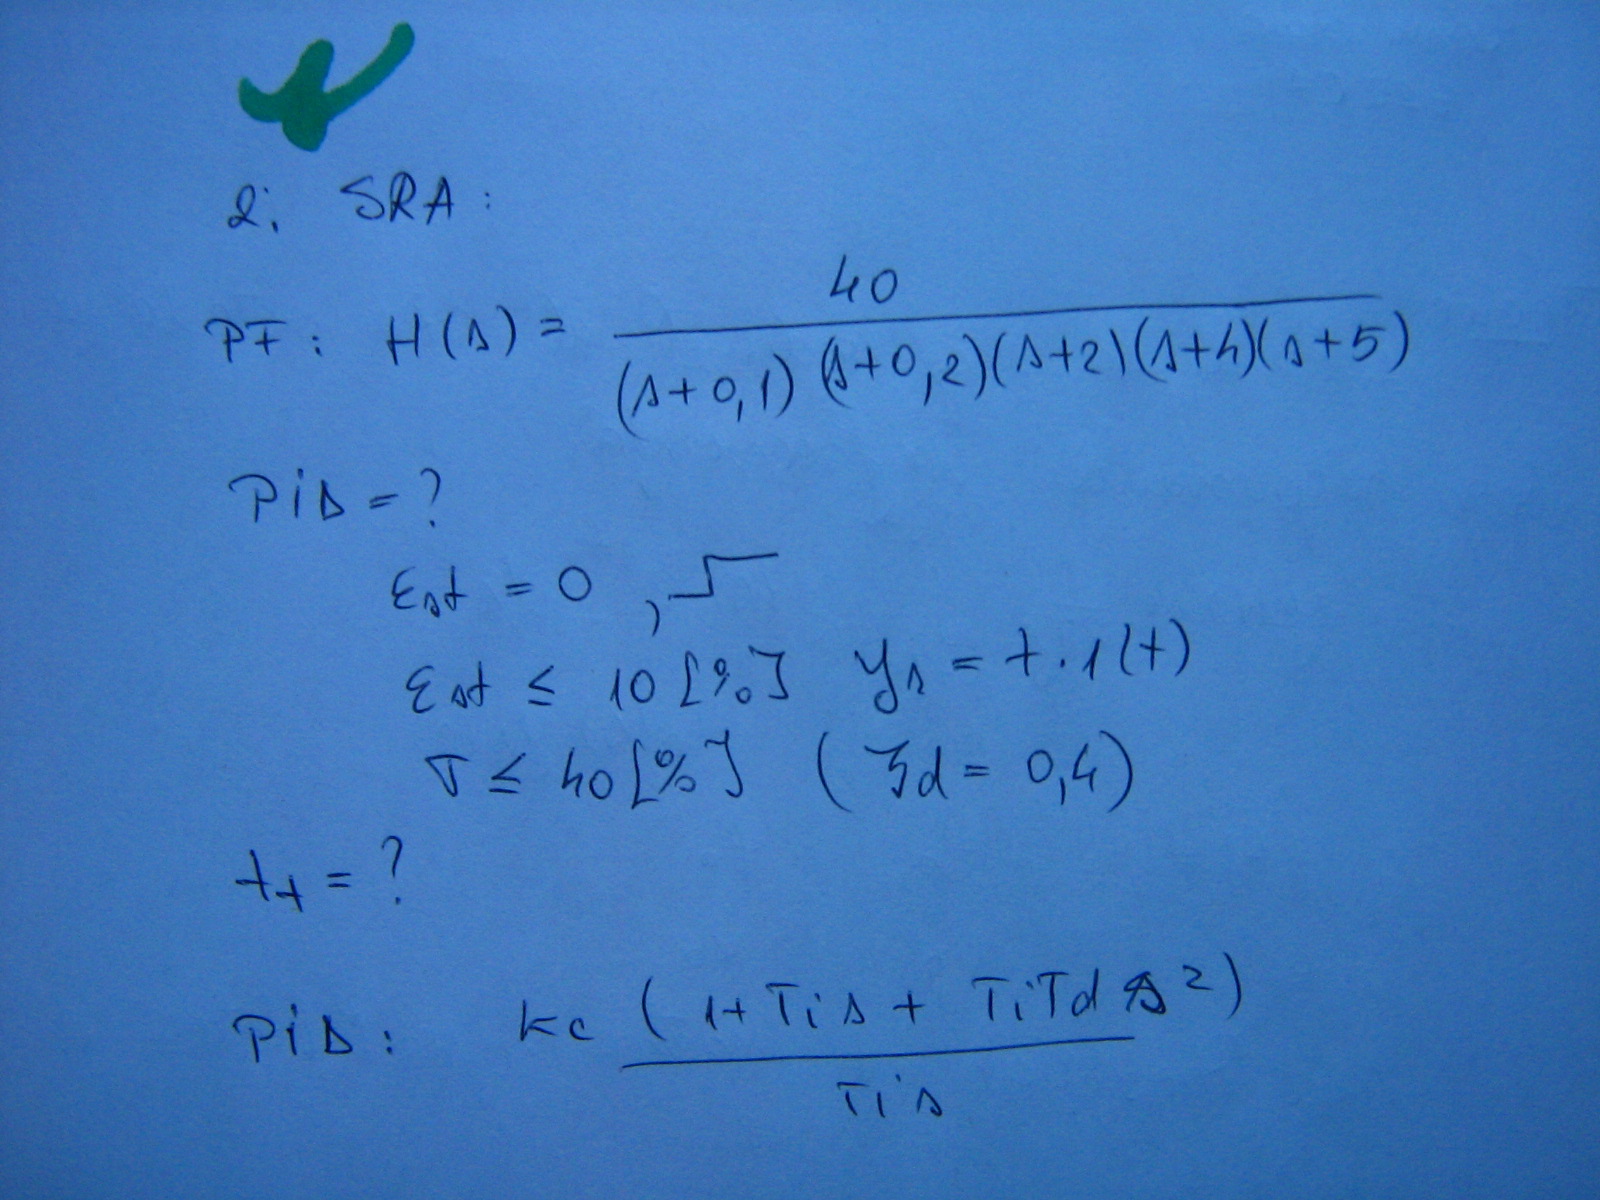 2; SRA:
PF: H(s) = 40 / (s+0,1)(s+0,2)(s+2)(s+4)(s+5)
PiD = ?
εst = 0 ,
εst ≤ 10 [%] ys = t.1(t)
σ ≤ 40 [%] (ζd = 0,4)
tt = ?
PiD: kc (1+Tis + TiTd s²) / Tis